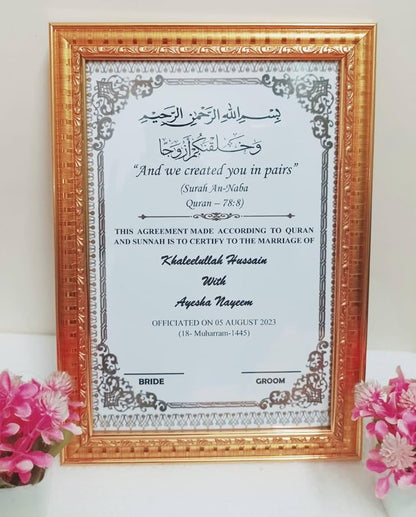 بِسْمِ اللهِ الرَّحْمٰنِ الرَّحِيْمِ
وَخَلَقْنٰكُمْ اَزْوَاجًا
“And we created you in pairs”
(Surah An-Naba
Quran – 78:8)
THIS AGREEMENT MADE ACCORDING TO QURAN
AND SUNNAH IS TO CERTIFY TO THE MARRIAGE OF
Khaleelullah Hussain
With
Ayesha Nayeem
OFFICIATED ON 05 AUGUST 2023
(18- Muharram-1445)
BRIDE GROOM